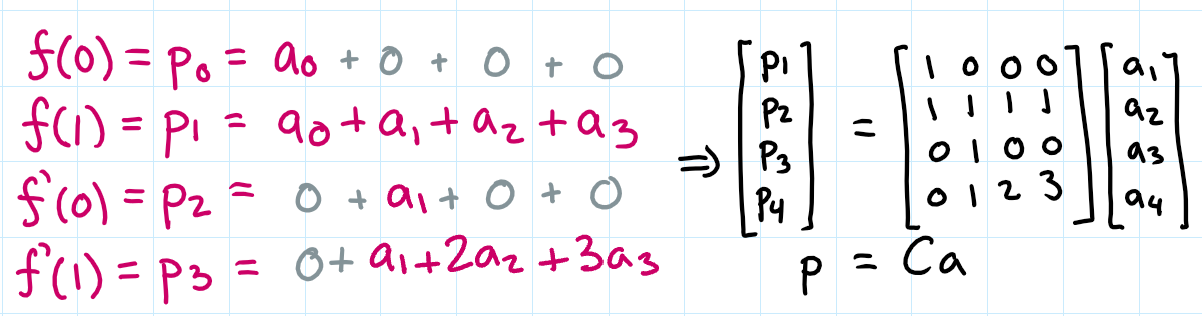 f(0) = p₀ = a₀ + 0 + 0 + 0
f(1) = p₁ = a₀ + a₁ + a₂ + a₃
f'(0) = p₂ = 0 + a₁ + 0 + 0
f'(1) = p₃ = 0 + a₁ + 2a₂ + 3a₃
⇒ [p₁ p₂ p₃ p₄] = [1 0 0 0
1 1 1 1
0 1 0 0
0 1 2 3] [a₁ a₂ a₃ a₄]
p = Ca